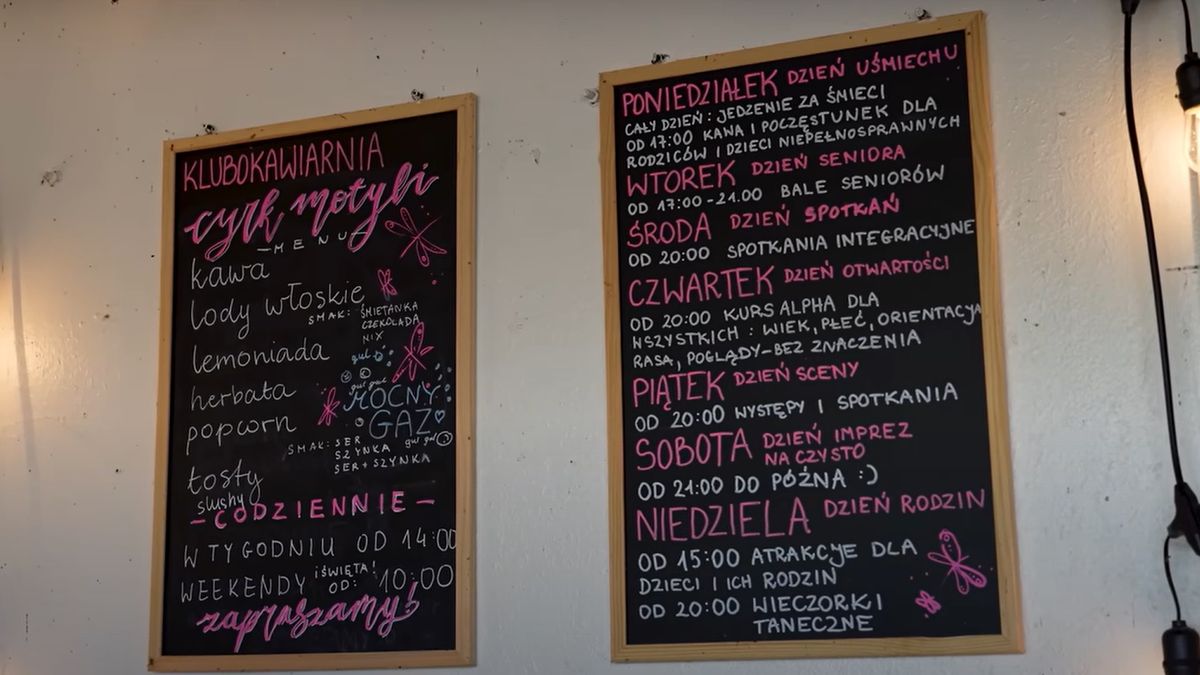 KLUBOKAWIARNIA
cyrk motyli
—MENU—
kawa
lody włoskie
SMAK: ŚMIETANKA
CZEKOLADA
MIX
lemoniada
gul
herbata
gul gul
MOCNY
GAZ
popcorn
gul gul
SMAK: SER
SZYNKA
SER+SZYNKA
tosty
slushy
— CODZIENNIE —
W TYGODNIU OD 14:00
WEEKENDY i ŚWIĘTA! OD: 10:00
zapraszamy!
PONIEDZIAŁEK DZIEŃ UŚMIECHU
CAŁY DZIEŃ: JEDZENIE ZA ŚMIECI
OD 17:00 KAWA I POCZĘSTUNEK DLA
RODZICÓW I DZIECI NIEPEŁNOSPRAWNYCH
WTOREK DZIEŃ SENIORA
OD 17:00-21.00 BALE SENIORÓW
ŚRODA DZIEŃ SPOTKAŃ
OD 20:00 SPOTKANIA INTEGRACYJNE
CZWARTEK DZIEŃ OTWARTOŚCI
OD 20:00 KURS ALPHA DLA
WSZYSTKICH: WIEK, PŁEĆ, ORIENTACJA
RASA, POGLĄDY-BEZ ZNACZENIA
PIĄTEK DZIEŃ SCENY
OD 20:00 WYSTĘPY I SPOTKANIA
SOBOTA DZIEŃ IMPREZ
NA CZYSTO
OD 21:00 DO PÓŹNA :)
NIEDZIELA DZIEŃ RODZIN
OD 15:00 ATRAKCJE DLA
DZIECI I ICH RODZIN
OD 20:00 WIECZORKI
TANECZNE